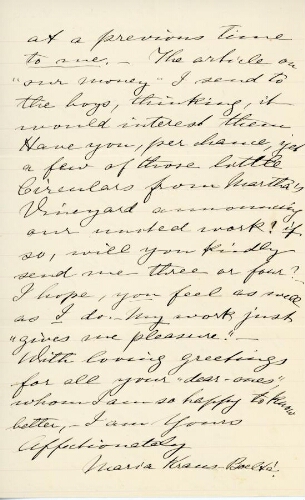 at a previous time
to me. – The article on
"our money" I send to
the boys, thinking, it
would interest them.
Have you, per chance, yet
a few of those little
Circulars from Martha's
Vineyard announcing
our united work? if
so, will you kindly
send me three or four?
I hope, you feel as well
as I do. My work just
"gives me pleasure!" –
With loving greetings
for all your "dear-ones"
whom I am so happy to know
better, – I am Yours
Affectionately
Maria Kraus-Boelté.